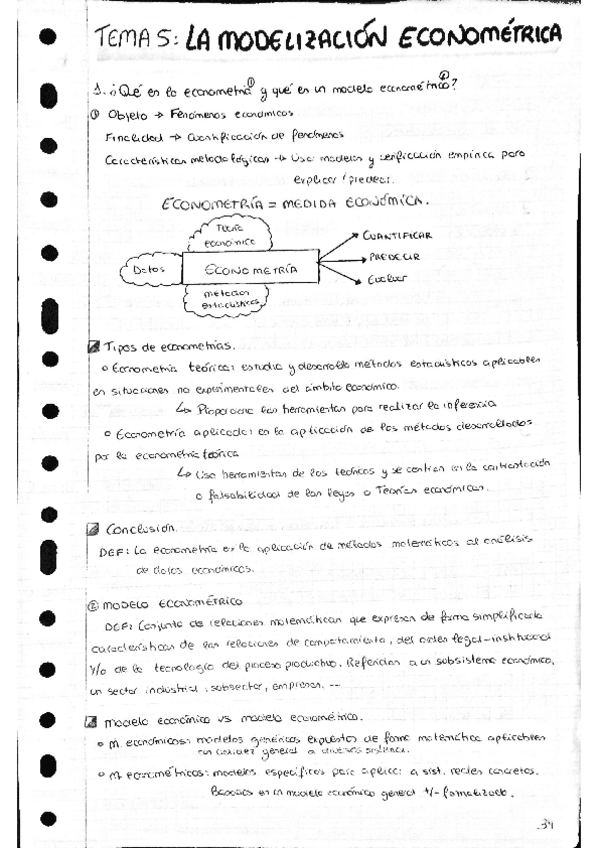 TEMA 5: LA MODELIZACIÓN ECONOMÉTRICA
1. ¿Qué es la econometría① y qué es un modelo econométrico②?
① Objeto → Fenómenos económicos
Finalidad → Cuantificación de fenómenos
Características metodológicas → Usar modelos y verificación empírica para
explicar / predecir.
ECONOMETRÍA = MEDIDA ECONÓMICA.
Teoría
económica
Datos
ECONOMETRÍA
métodos
estadísticos
CUANTIFICAR
PREDECIR
Evaluar
Tipos de econometrías.
Econometría teórica: estudia y desarrolla métodos estadísticos aplicables
en situaciones no experimentales del ámbito económico.
↳ Proporciona las herramientas para realizar la inferencia
Econometría aplicada: es la aplicación de los métodos desarrollados
por la econometría teórica
↳ Usa herramientas de los teóricos y se centran en la contrastación
o falsabilidad de las leyes o Teorías económicas.
Conclusión.
DEF: La econometría es la aplicación de métodos matemáticos al análisis
de datos económicos.
② MODELO ECONOMÉTRICO
DEF: Conjunto de relaciones matemáticas que expresan de forma simplificada
características de las relaciones de comportamiento, del orden legal-institucional
y/o de la tecnología del proceso productivo. Referidas a un subsistema económico,
un sector industrial, subsector, empresas. --
modelo económico vs modelo econométrico.
M. económicos: modelos genéricos expuestos de forma matemática aplicables
con carácter general a diversos sistemas.
M. econométricos: modelos específicos para aplicar a sist. reales concretos.
Basados en un modelo económico general +/- formalizado.
34